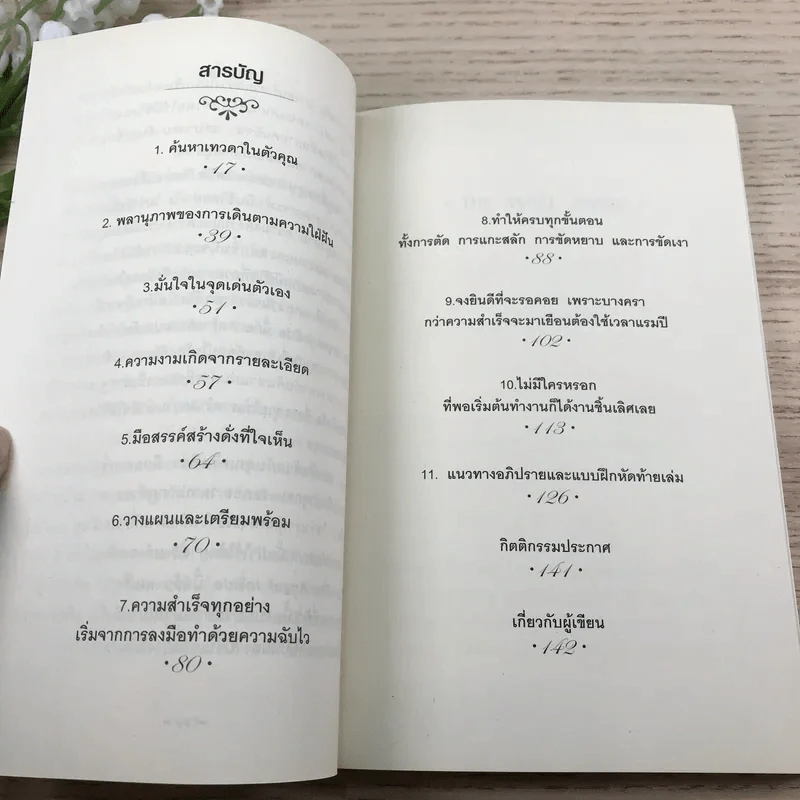 สารบัญ
1. ค้นหาเทวดาในตัวคุณ
•17•
2. พลานุภาพของการเดินตามความใฝ่ฝัน
•39•
3.มั่นใจในจุดเด่นตัวเอง
•51•
4.ความงามเกิดจากรายละเอียด
•57•
5.มือสรรค์สร้างดั่งที่ใจเห็น
•64•
6.วางแผนและเตรียมพร้อม
•70•
7.ความสำเร็จทุกอย่าง
เริ่มจากการลงมือทำด้วยความฉับไว
•80•
8.ทำให้ครบทุกขั้นตอน
ทั้งการตัด การแกะสลัก การขัดหยาบ และการขัดเงา
•88•
9.จงยินดีที่จะรอคอย เพราะบางครา
กว่าความสำเร็จจะมาเยือนต้องใช้เวลาแรมปี
•102•
10.ไม่มีใครหรอก
ที่พอเริ่มต้นทำงานก็ได้งานชิ้นเลิศเลย
•113•
11. แนวทางอภิปรายและแบบฝึกหัดท้ายเล่ม
•126•
กิตติกรรมประกาศ
•141•
เกี่ยวกับผู้เขียน
•142•